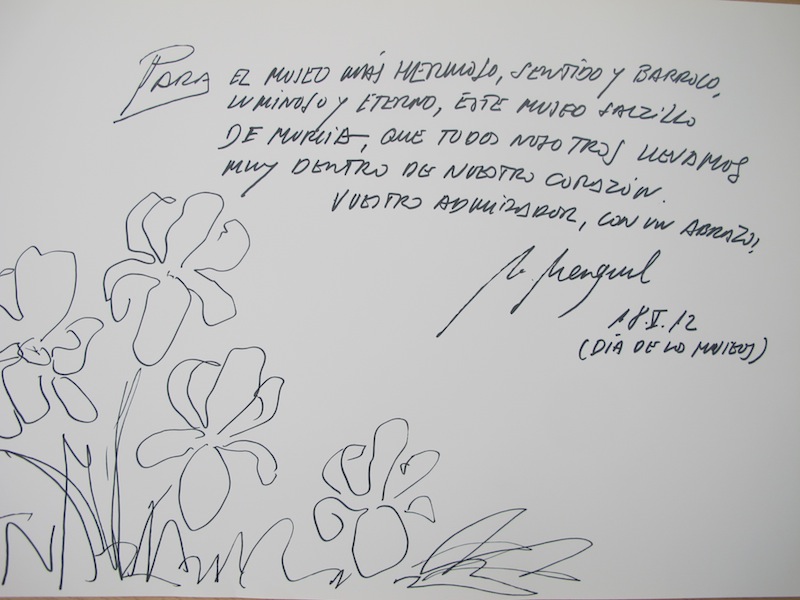 PARA EL MUSEO MÁS HERMOSO, SENTIDO Y BARROCO,
LUMINOSO Y ETERNO, ESTE MUSEO SALZILLO
DE MURCIA, QUE TODOS NOSOTROS LLEVAMOS
MUY DENTRO DE NUESTRO CORAZÓN.
VUESTRO ADMIRADOR, CON UN ABRAZO,
18.V.12
(DÍA DE LO MUSEOS)